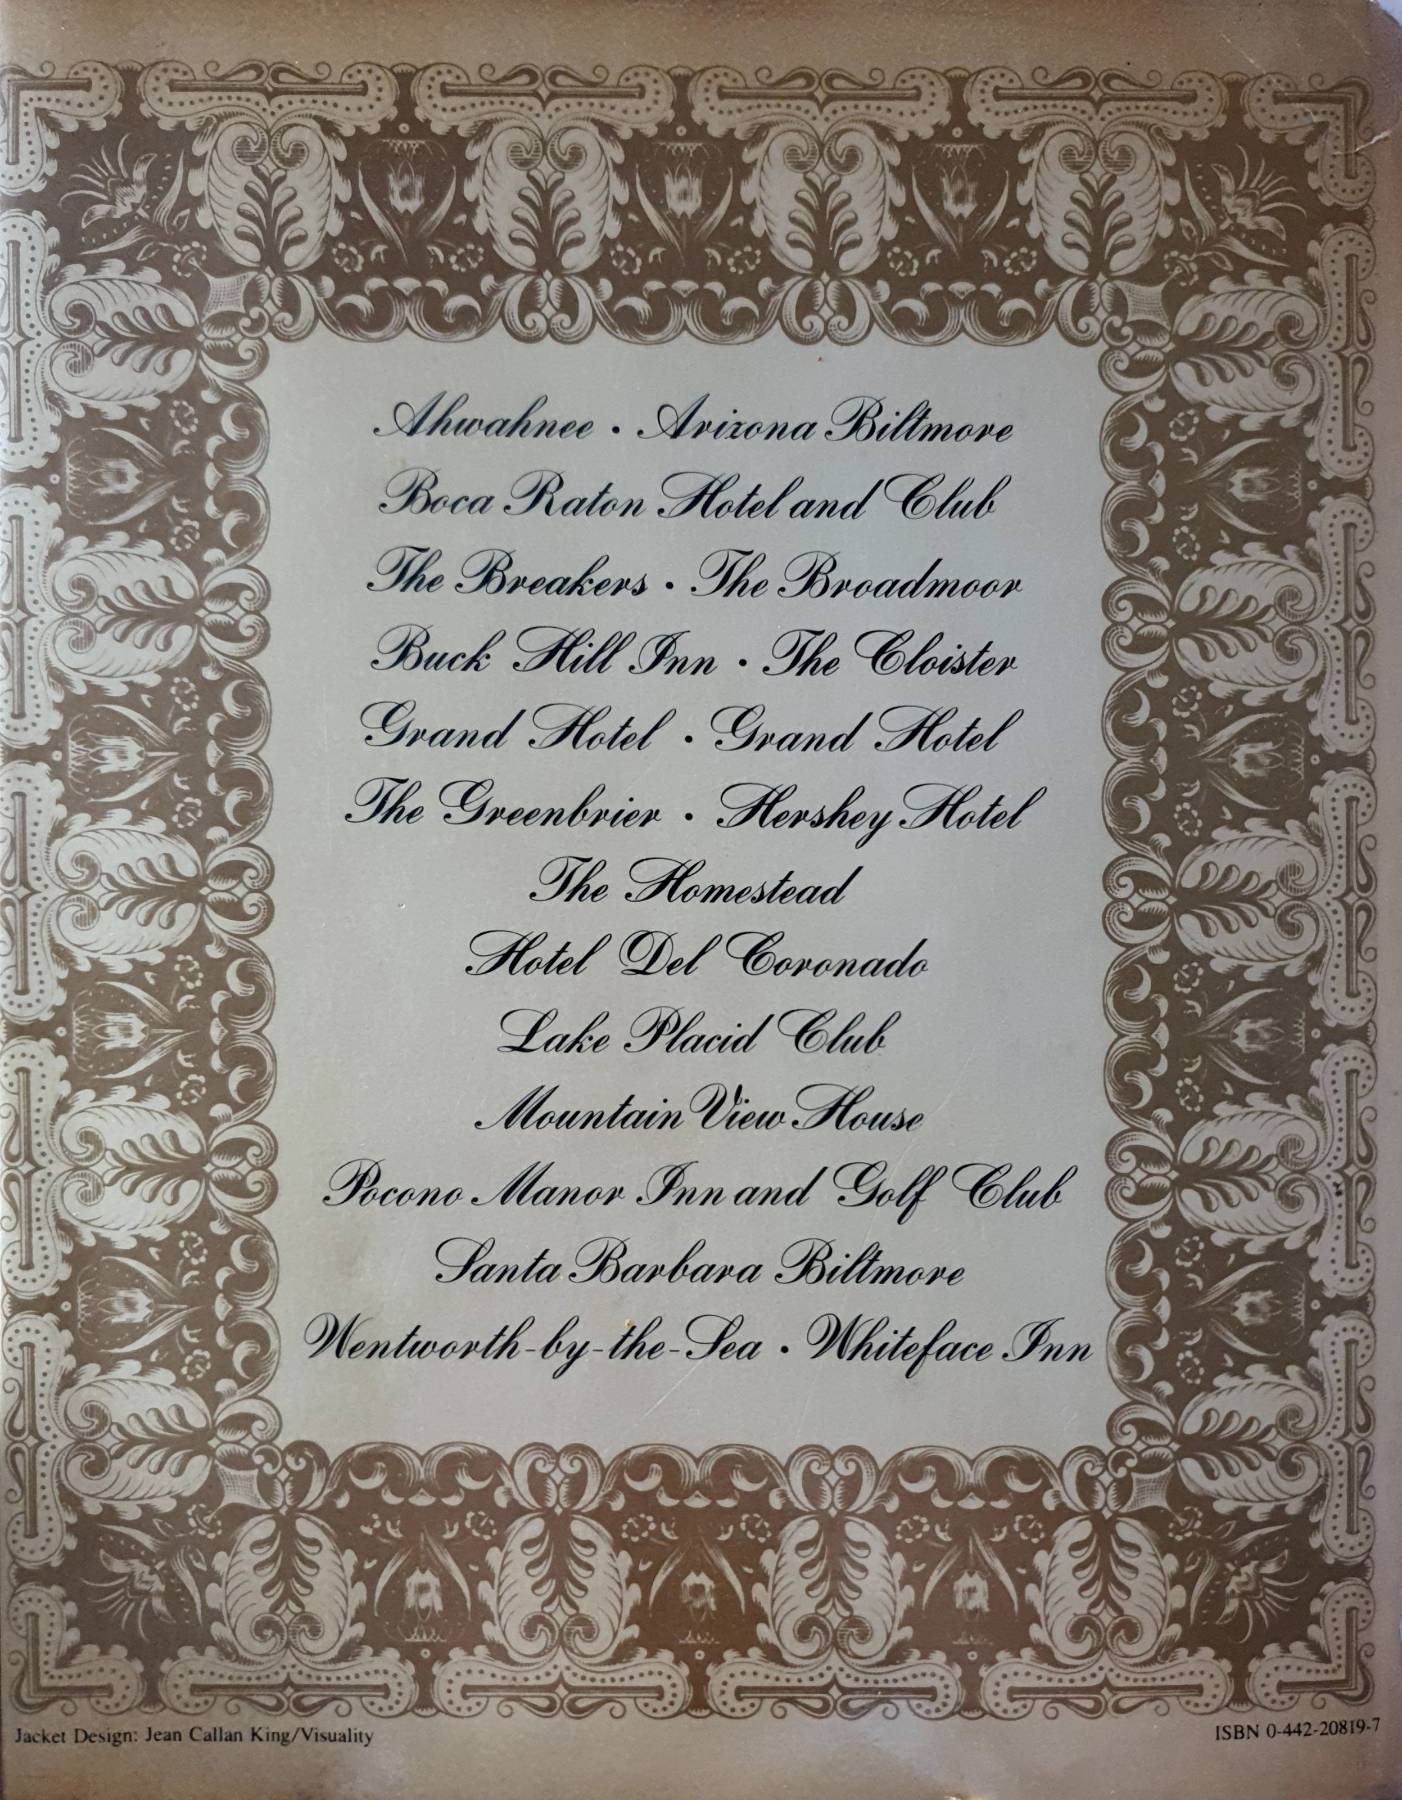 Ahwahnee • Arizona Biltmore
Boca Raton Hotel and Club
The Breakers • The Broadmoor
Buck Hill Inn • The Cloister
Grand Hotel • Grand Hotel
The Greenbrier • Hershey Hotel
The Homestead
Hotel Del Coronado
Lake Placid Club
Mountain View House
Pocono Manor Inn and Golf Club
Santa Barbara Biltmore
Wentworth-by-the-Sea • Whiteface Inn
Jacket Design: Jean Callan King/Visuality
ISBN 0-442-20819-7